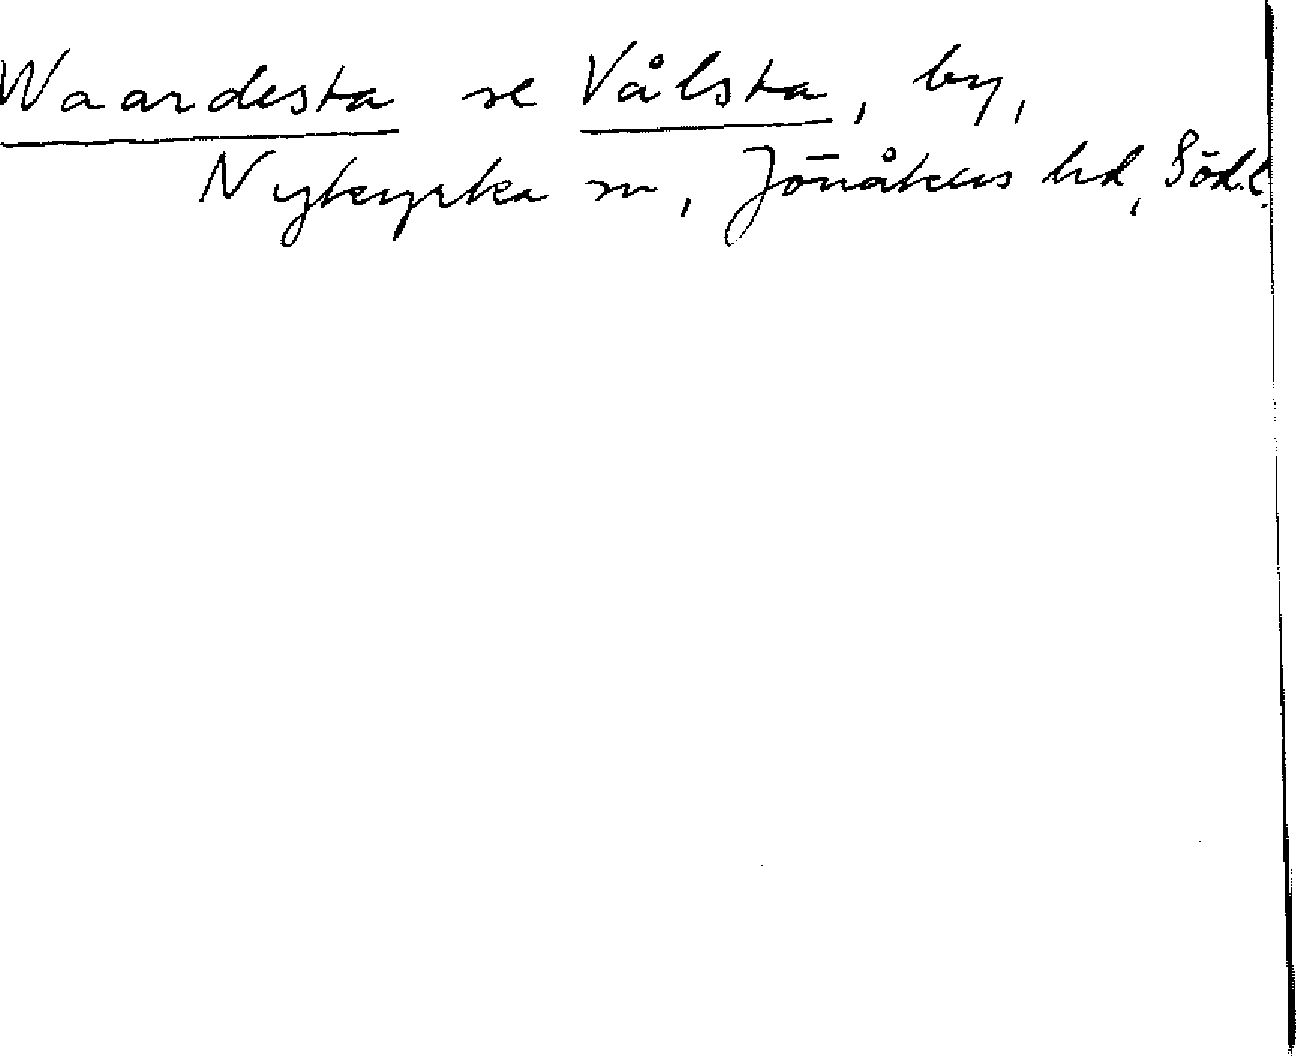 Waardesta se Vålsta, by,
Nykyrka sn, Jönåkers hd, Södl.